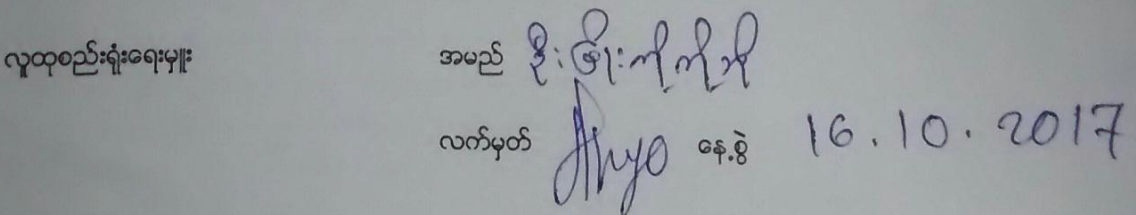 လူထုစည်းရုံးရေးမှူး အမည် ဦးဖြိုးကိုကိုဘို
လက်မှတ် နေ့စွဲ 16.10.2017